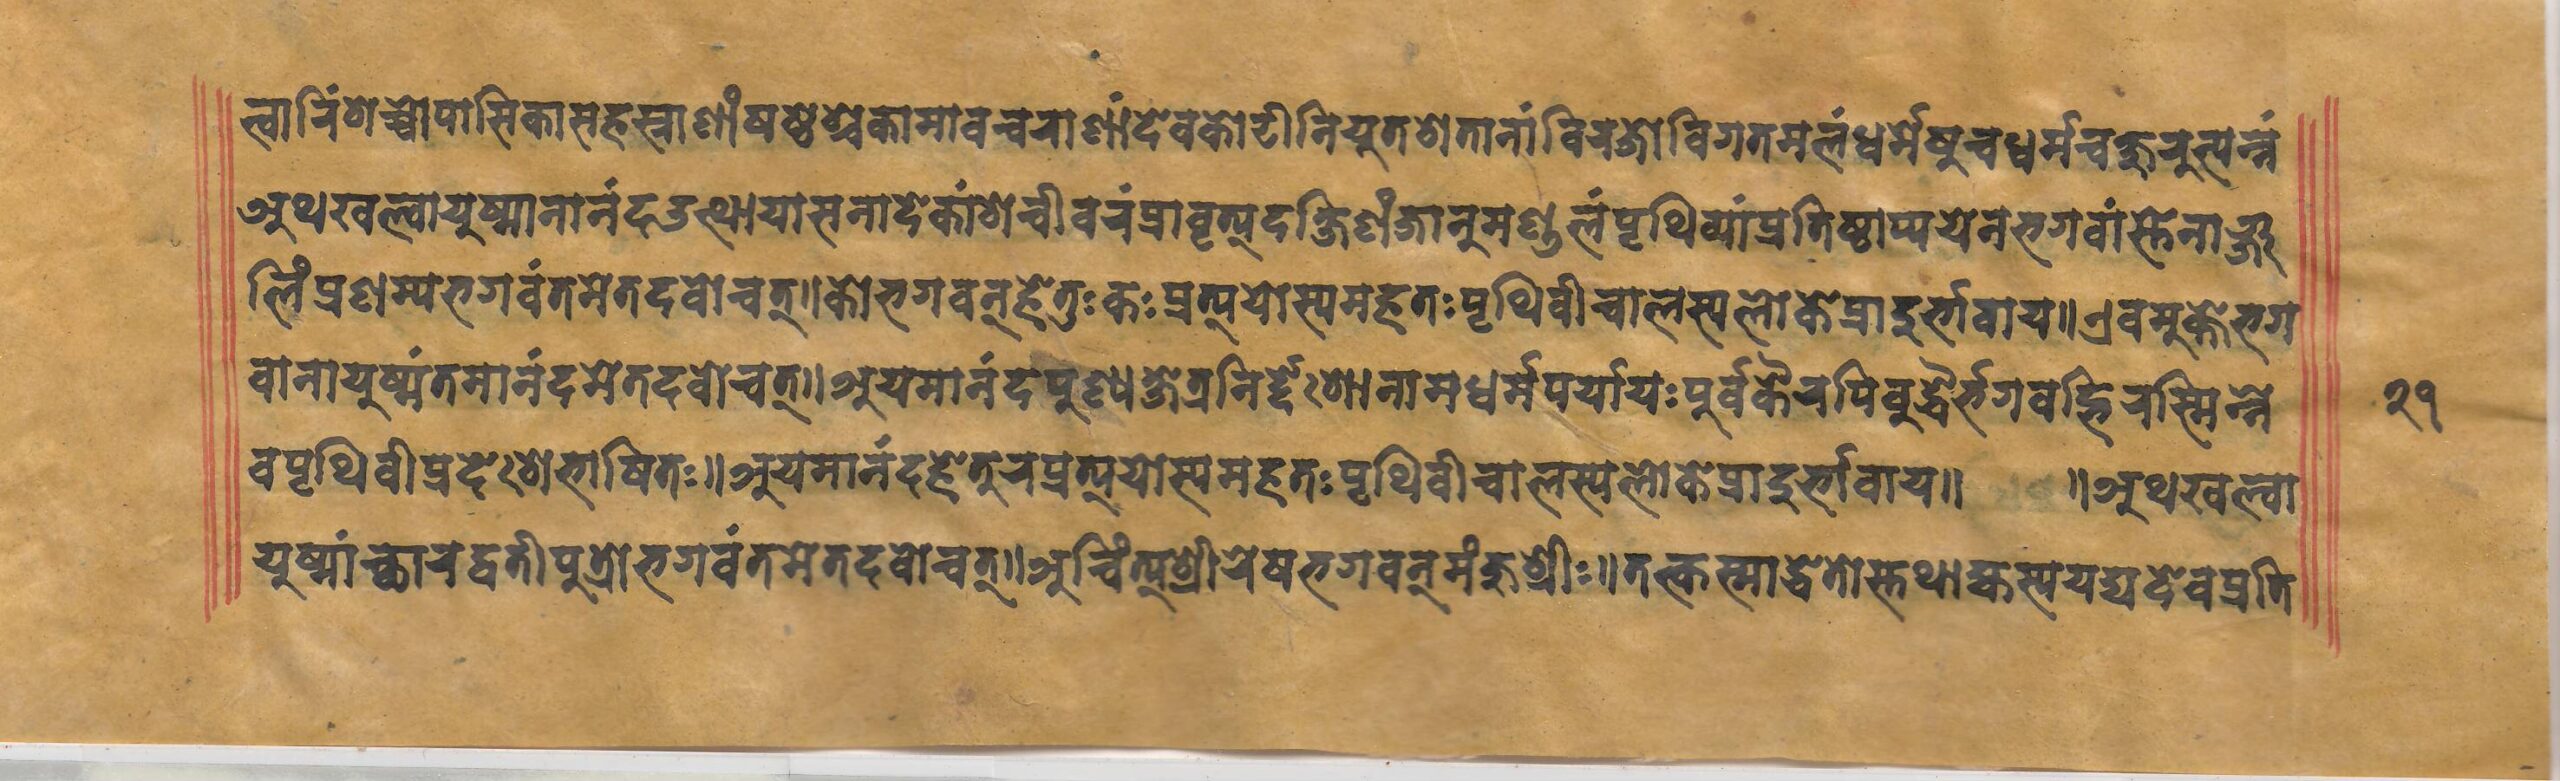 त्वारिंशच्चोपासिकासहस्राणांषष्ठेश्चकामावचराणांदेवकोटीनियुतशतानांविरजोविगतमलंधर्मेषुचधर्मचक्षुरुत्पन्नं
अथखल्वायुष्मानानंदउत्थायासनादेकांशचीवरंप्रावृत्यदक्षिणंजानुमण्डलंपृथिव्यांप्रतिष्ठाप्ययेनभगवांस्तेनाञ्ज
लिंप्रणम्यभगवंतमेतदवोचत्॥कोभगवन्हेतुःकःप्रत्ययोस्यमहतःपृथिवीचालस्यलोकेप्रादुर्भावाय॥एवमुक्तेभग
वानायुष्मंतमानंदमेतदवोचत्॥अयमानंदपुण्यक्षेत्रनिर्द्देशोनामधर्मपर्यायःपुर्वकैरपिबुद्धैर्भगवद्भिरस्मिन्ने २१
वपृथिवीप्रदेशेभाषितः॥अयमानंदहेतुरप्रत्ययोस्यमहतःपृथिवीचालस्यलोकेप्रादुर्भावाय॥ ॥अथखल्वा
युष्मांच्छारद्वतीपुत्रोभगवंतमेतदवोचत्॥अचिंत्यश्रीरेषभगवन्मंजुश्रीः॥तत्कस्माद्धेतोस्तथाह्यस्ययद्यदेवप्रति